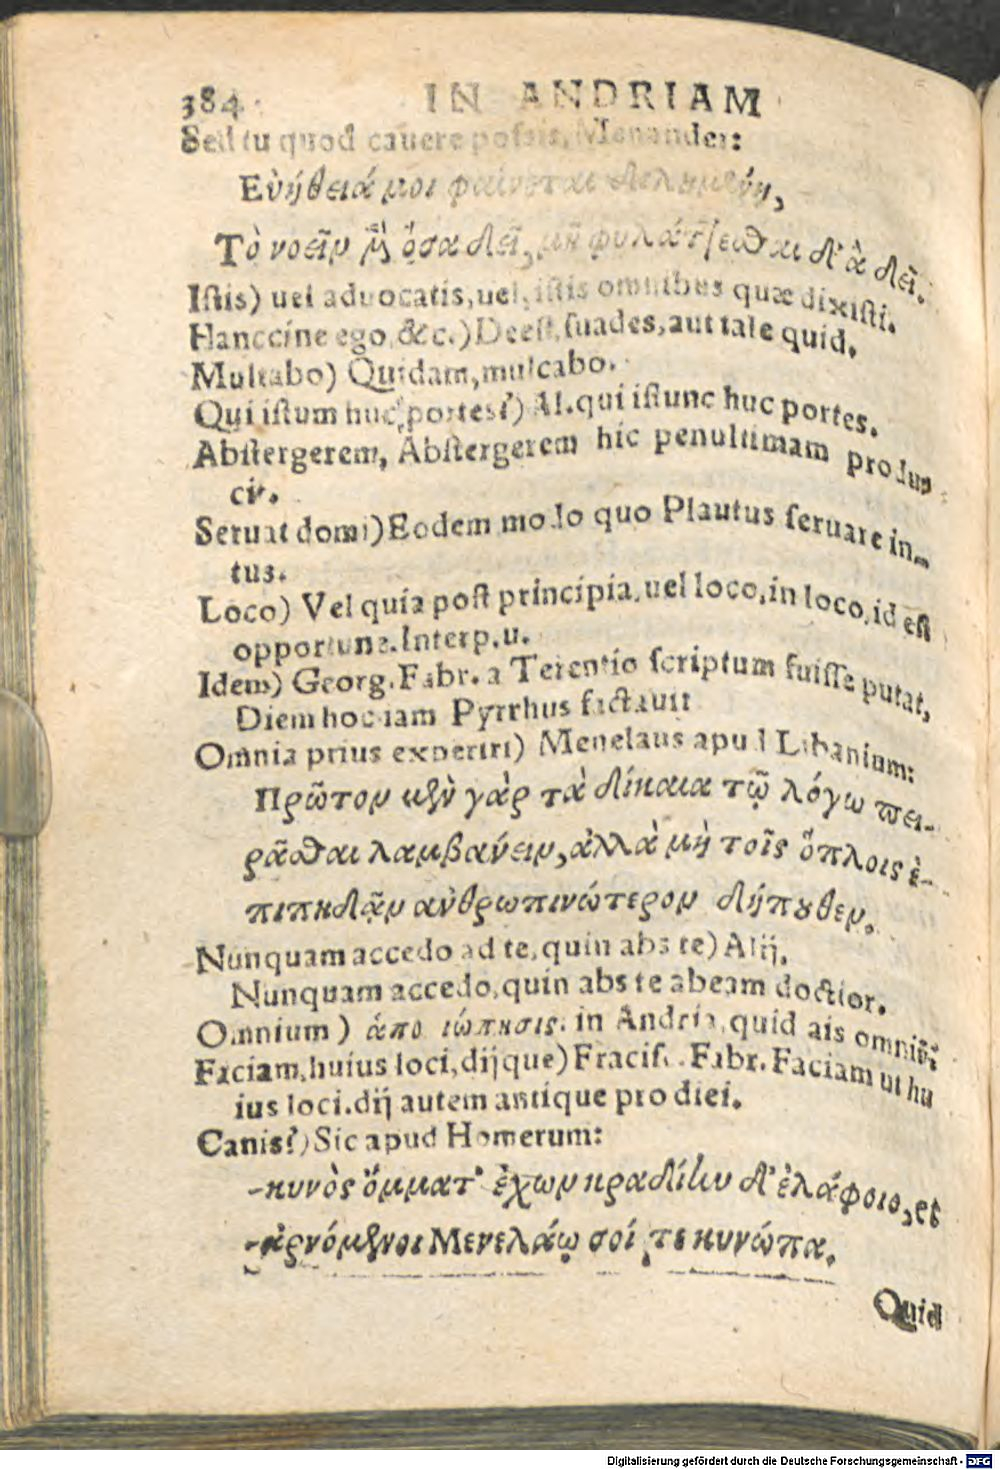 384 IN ANDRIAM
Sed tu quod cauere possis, Menander:
Εὐήθειά μοι φαίνεται
Τὸ νοεῖν μὲν ὅσα δεῖ, μὴ φυλάττεσθαι δ' ἃ δεῖ.
Istis) uel aduocatis, uel, istis omnibus quæ dixisti.
Hanccine ego &c.) Deest, suades, aut tale quid.
Multabo) Quidam, mulcabo.
Qui istum huc portes?) Al. qui istunc huc portes.
Abstergerem, Abstergerem hic penultimam produ-
cit.
Seruat domi) Eodem modo quo Plautus seruare in-
tus.
Loco) Vel quia post principia, uel loco, in loco, id est
opportune. Interp. u.
Idem) Georg. Fabr. a Terentio scriptum fuisse putat,
Diem hoc iam Pyrrhus factauit
Omnia prius experiri) Menelaus apud Libanium:
Πρῶτον μὲν γὰρ τὰ δίκαια τῷ λόγῳ πει-
ρᾶσθαι λαμβάνειν, ἀλλὰ μὴ τοῖς ὅπλοις ἐ-
πιπηδᾷν ἀνθρωπινώτερον δήπουθεν.
Nunquam accedo ad te, quin abs te) Alij.
Nunquam accedo, quin abs te abeam doctior.
Omnium) ἀπο σιώπησις. in Andria, quid ais omniū?
Faciam, huius loci, dijque) Fracisc. Fabr. Faciam ut hu
ius loci. dij autem antique pro diei.
Canis?) Sic apud Homerum:
-κυνὸς ὄμματ' ἔχων κραδίην δ' ἐλάφοιο, et
-ἀρνύμενοι Μενελάῳ σοί τε κυνώπα.
Quid
Digitalisierung gefördert durch die Deutsche Forschungsgemeinschaft - DFG